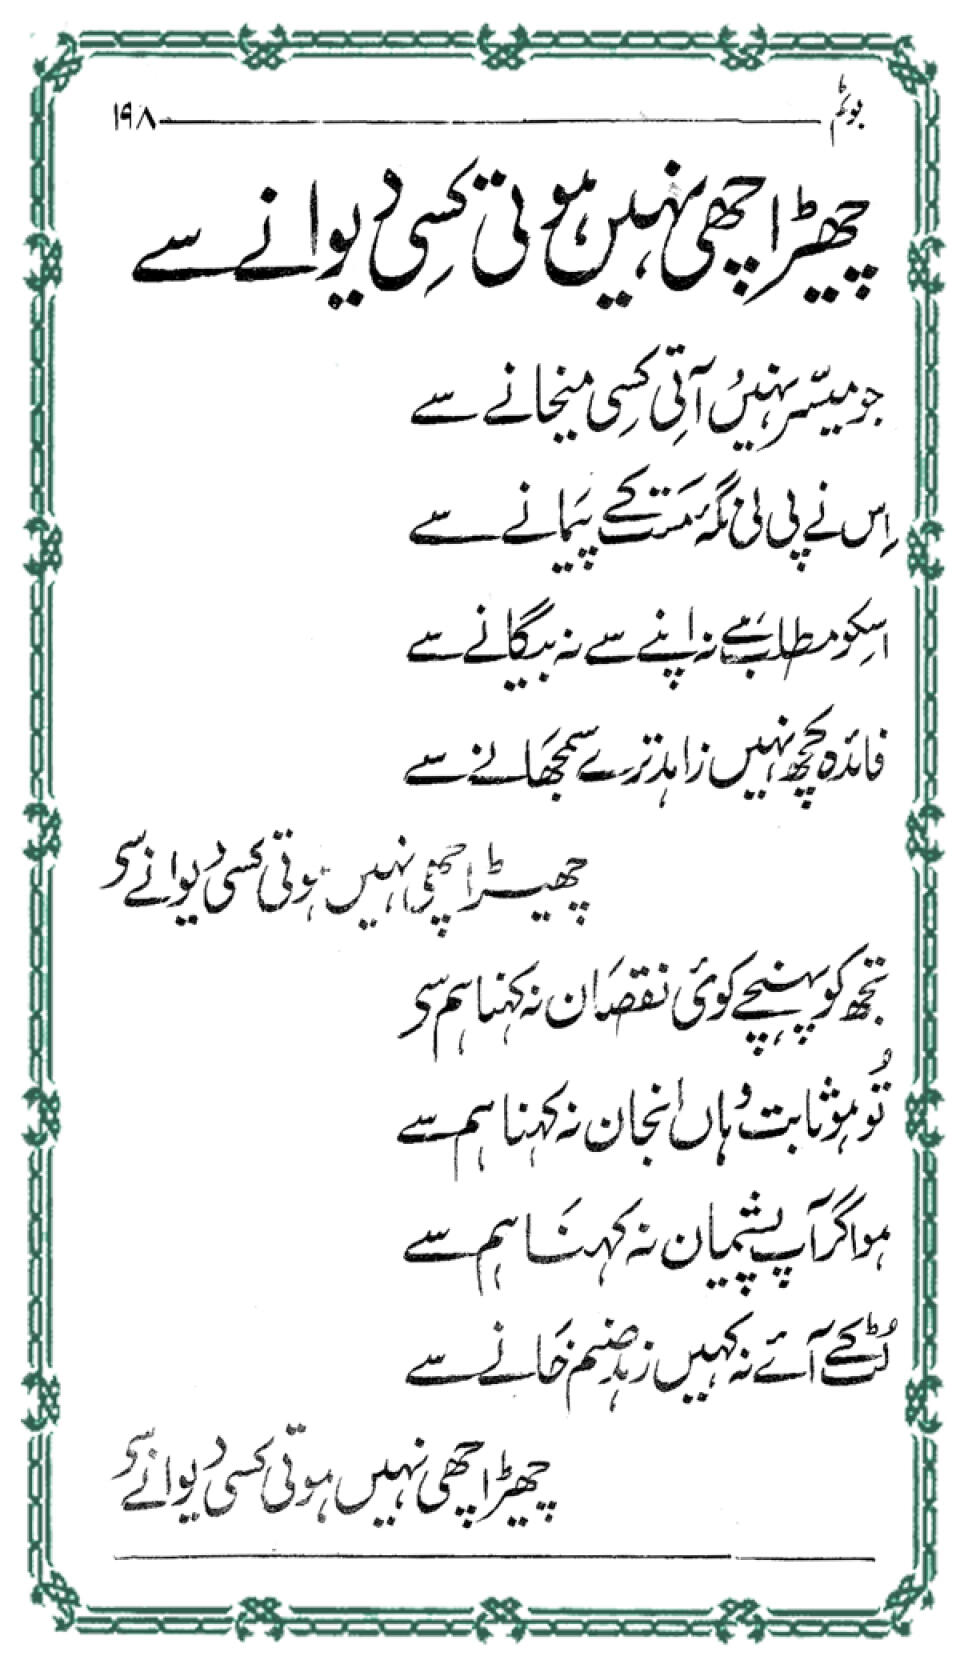 بوئم ۱۹۸
چھیڑ اچھی نہیں ہوتی کسی دیوانے سے
جو میسّر نہیں آتی کسی میخانے سے
اِس نے پی لی نگہِ مست کے پیمانے سے
اسکو مطلب ہے نہ اپنے سے نہ بیگانے سے
فائدہ کچھ نہیں زاہد ترے سمجھانے سے
چھیڑ اچھی نہیں ہوتی کسی دیوانے سے
تجھ کو پہنچے کوئی نقصان نہ کہنا ہم سے
تُو ہو ثابت وہاں انجان نہ کہنا ہم سے
ہو اگر آپ پشیمان نہ کہنا ہم سے
لُٹ کے آئے نہ کہیں زہد صنم خانے سے
چھیڑ اچھی نہیں ہوتی کسی دیوانے سے